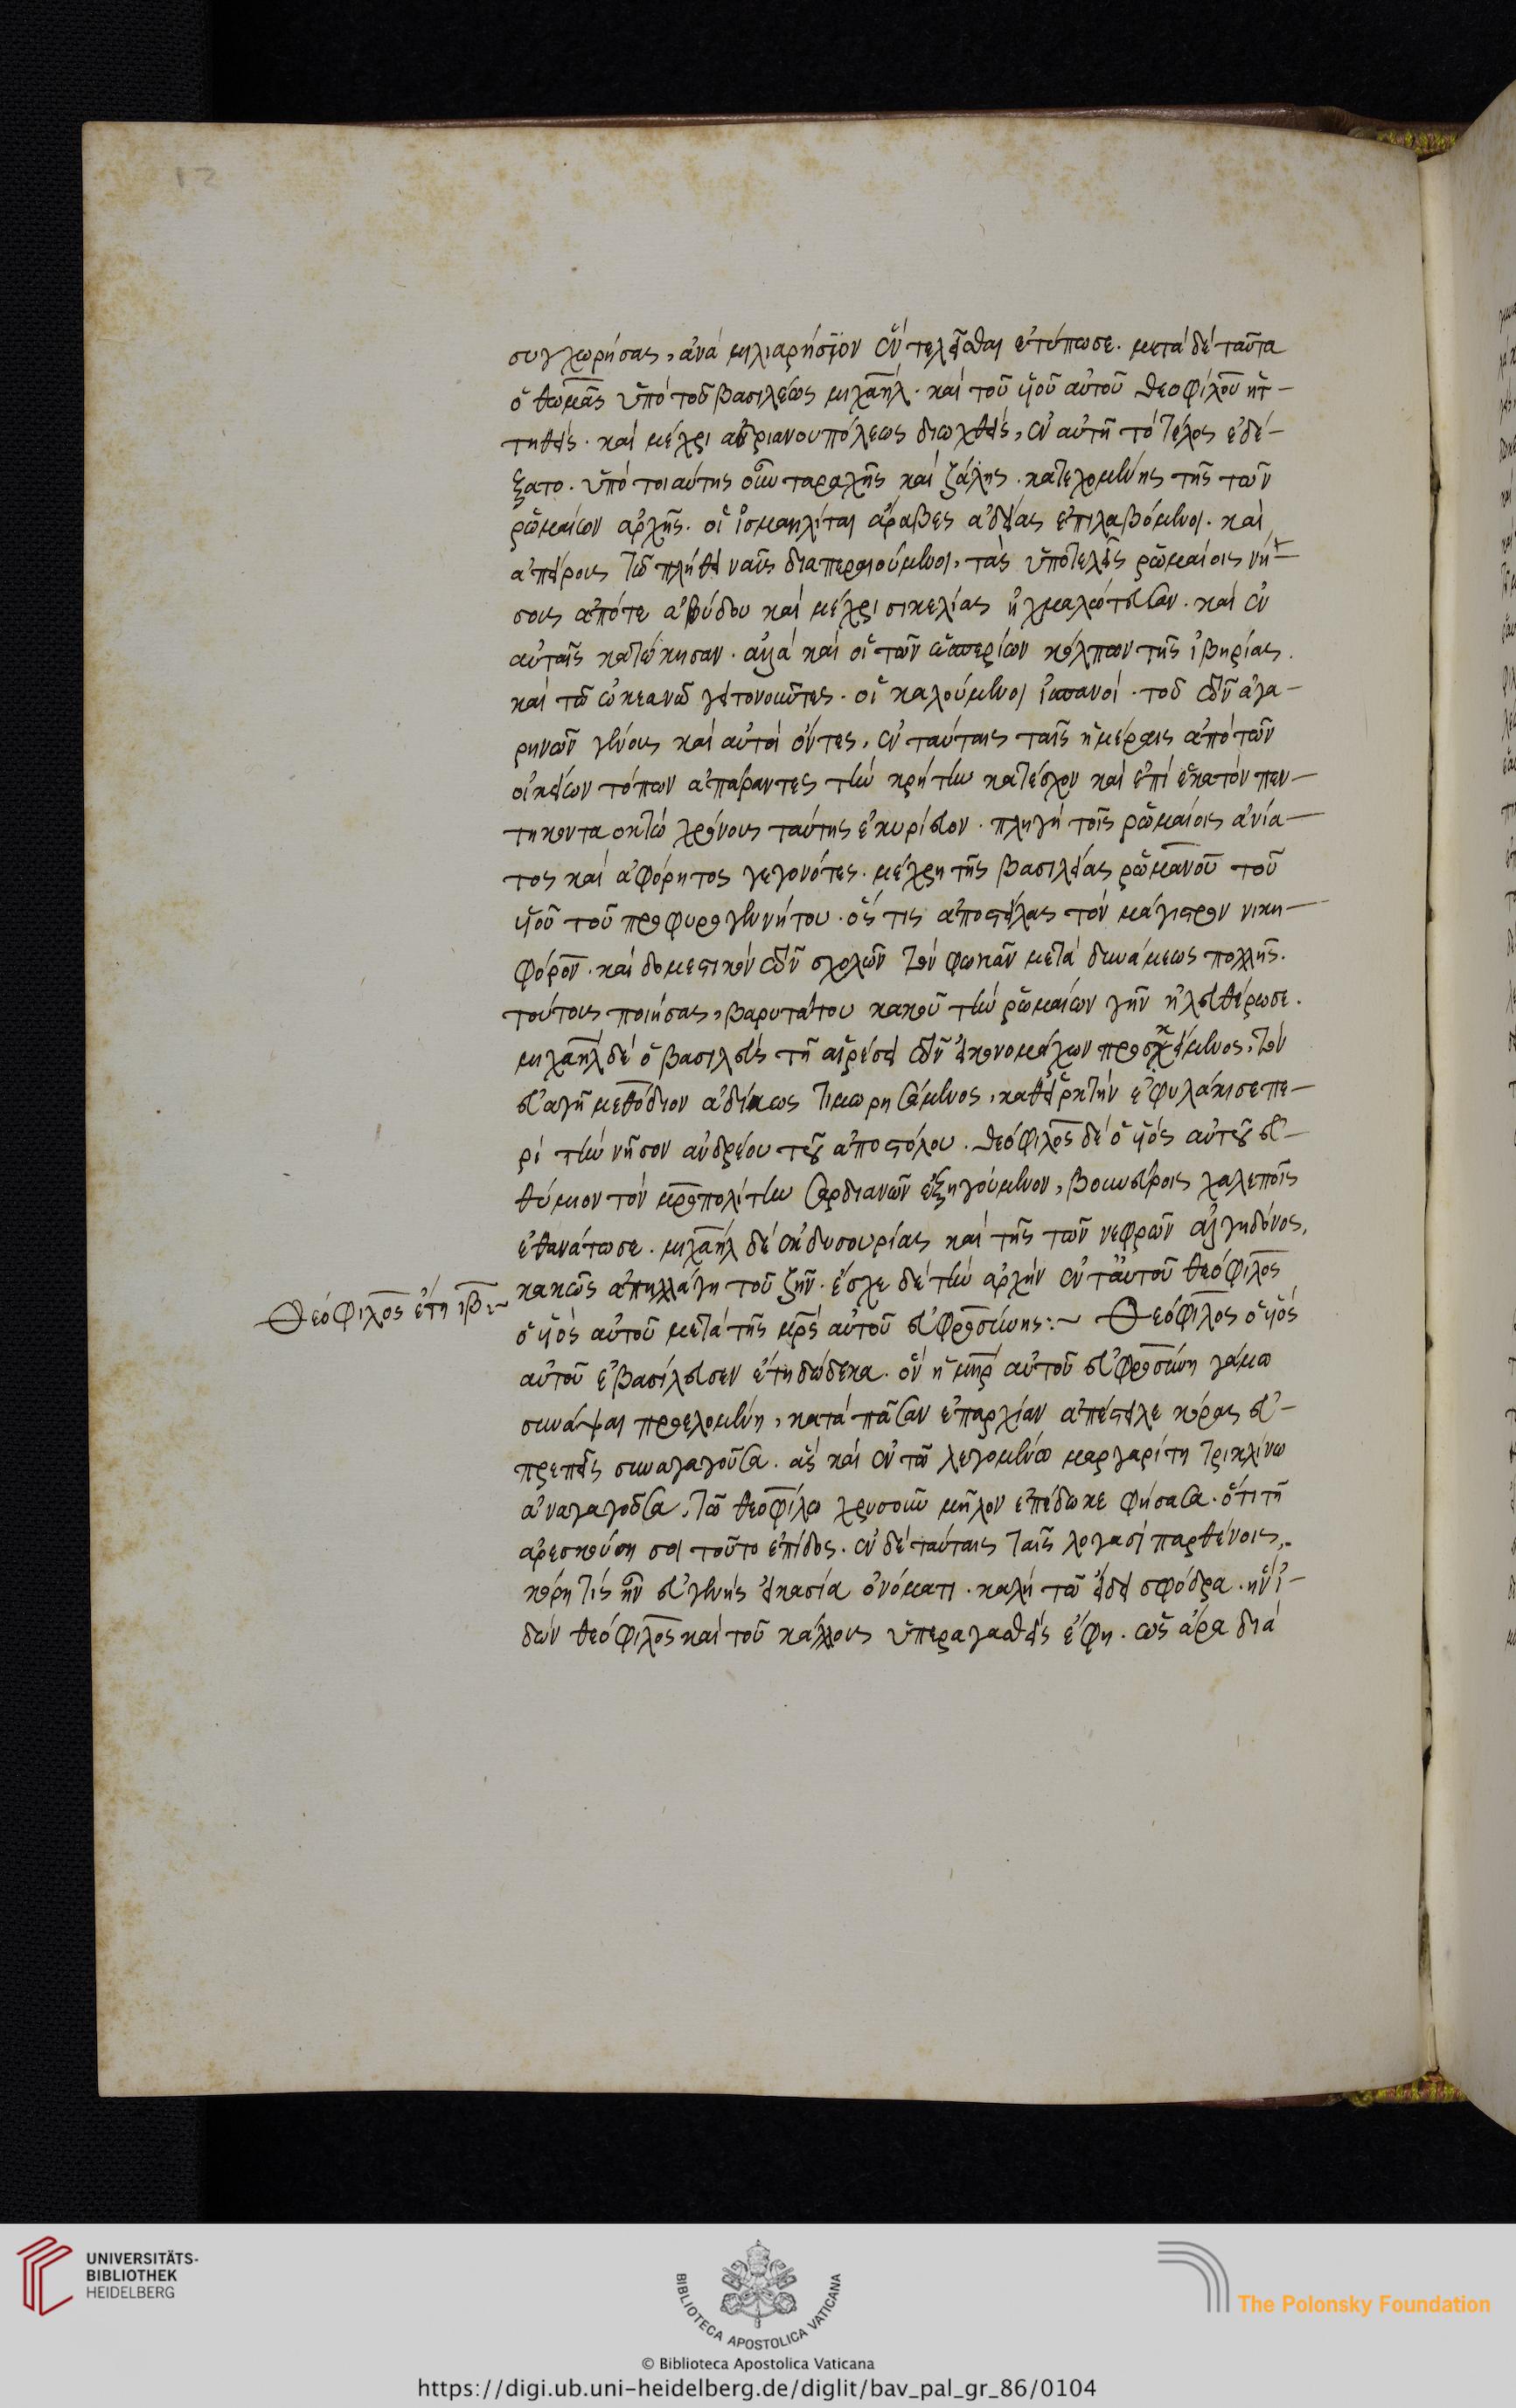 12
συγχωρήσας, ἀνὰ μιλιαρήσϊον ἓν τελεῖσθαι ἐτύπωσε. μετὰ δὲ ταῦτα
ὁ θωμᾶς ὑπὸ τοῦ βασιλέως μιχαὴλ. καὶ τοῦ υἱοῦ αὐτοῦ θεοφίλου ἡτ-
τηθεὶς. καὶ μέχρι ἀδριανουπόλεως διωχθεὶς, ἐν αὐτῆ τὸ τέλος ἐδέ-
ξατο. ὑπὸ τοιαύτης οὖν ταραχῆς καὶ ζάλης. κατεχομένης τῆς τῶν
ῥωμαίων ἀρχῆς. οἱ ἰσμαηλίται ἄραβες ἀδείας ἐπιλαβόμενοι. καὶ
ἀπείροις τῶ πλήθει ναῦς διαπεραιούμενοι, τὰς ὑποτελεῖς ῥωμαίοις νή-
σους ἀπό τε ἀβύδου καὶ μέχρι σικελίας ἠχμαλώτευσαν. καὶ ἐν
αὐταῖς κατώκησαν. ἀλλὰ καὶ οἱ τῶν ἑσπερίων κόλπων τῆς ἰβηρίας.
καὶ τῶ ὠκεανῶ γειτονοῦντες. οἱ καλούμενοι ἱσπανοὶ. τοῦ τῶν ἀγα-
ρηνῶν γένους καὶ αὐτοὶ ὄντες, ἐν ταύταις ταῖς ἡμέραις ἀπὸ τῶν
οἰκείων τόπων ἀπάραντες τὴν κρήτην κατέσχον καὶ ἐπὶ ἑκατὸν πεν-
τήκοντα ὀκτὼ χρόνους ταύτης ἐκυρίευον. πληγὴ τοῖς ῥωμαίοις ἀνία-
τος καὶ ἀφόρητος γεγονότες. μέχρη τῆς βασιλείας ῥωμανοῦ τοῦ
υἱοῦ τοῦ πορφυρογεννήτου. ὅς τις ἀποστείλας τὸν μάγιστρον νικη-
φόρον. καὶ δομεστικὸν τῶν σχολῶν τὸν φωκᾶν μετὰ δυνάμεως πολλῆς.
τούτους ποιήσας, βαρυτάτου κακοῦ τὴν ῥωμαίων γῆν ἠλευθέρωσε.
μιχαὴλ δὲ ὁ βασιλεὺς τῆ αἱρέσει τῶν εἰκονομάχων προσκείμενος, τὸν
εὐαγῆ μεθόδιον ἀδίκως τιμωρησάμενος, καθειρκτὴν ἐφυλάκισε πε-
ρὶ τὴν νῆσον ἀνδρέου τοῦ ἀποστόλου. θεόφιλος δὲ ὁ υἱὸς αὐτοῦ εὐ-
θύμιον τὸν μροπολίτην σαρδιανῶν ἐξηγούμενον, βουνεύροις χαλεποῖς
ἐθανάτωσε. μιχαὴλ δὲ ἐκ δυσουρίας καὶ τῆς τῶν νεφρῶν ἀλγηδόνος,
κακῶς ἀπηλλάγη τοῦ ζῆν. ἔσχε δὲ τὴν ἀρχὴν ἐν ταυτοῦ θεόφιλος
Θεόφιλος ἔτη ιβ:~
ὁ υἱὸς αὐτοῦ μετὰ τῆς μρς αὐτοῦ εὐφροσύνης:~ Θεόφιλος ὁ υἱὸς
αὐτοῦ ἐβασίλευσεν ἔτη δώδεκα. ὃν ἡ μηρ αὐτοῦ εὐφροσύνη γάμω
συνάψαι προελομένη, κατὰ πᾶσαν ἐπαρχίαν ἀπέστειλε κόρας εὐ-
πρεπεῖς συναγαγοῦσα. ἃς καὶ ἐν τῶ λεγομένω μαργαρίτη τρικλίνω
ἀναγαγοῦσα, τῶ θεοφίλω χρυσοῦν μῆλον ἐπέδωκε φήσασα. ὅτι τῆ
ἀρεσκούση σοι τοῦτο ἐπίδος. ἐν δὲ ταύταις ταῖς λογασὶ παρθένοις,
κόρη τὶς ἦν εὐγενὴς εἰκασία ὀνόματι. καλὴ τῶ εἴδει σφόδρα. ἣν ἰ-
δὼν θεόφιλος καὶ τοῦ κάλλους ὑπεραγασθεὶς ἔφη. ὡς ἄρα διὰ
UNIVERSITÄTS-
BIBLIOTHEK
HEIDELBERG
BIBLIOTECA APOSTOLICA VATICANA
The Polonsky Foundation
© Biblioteca Apostolica Vaticana
https://digi.ub.uni-heidelberg.de/diglit/bav_pal_gr_86/0104